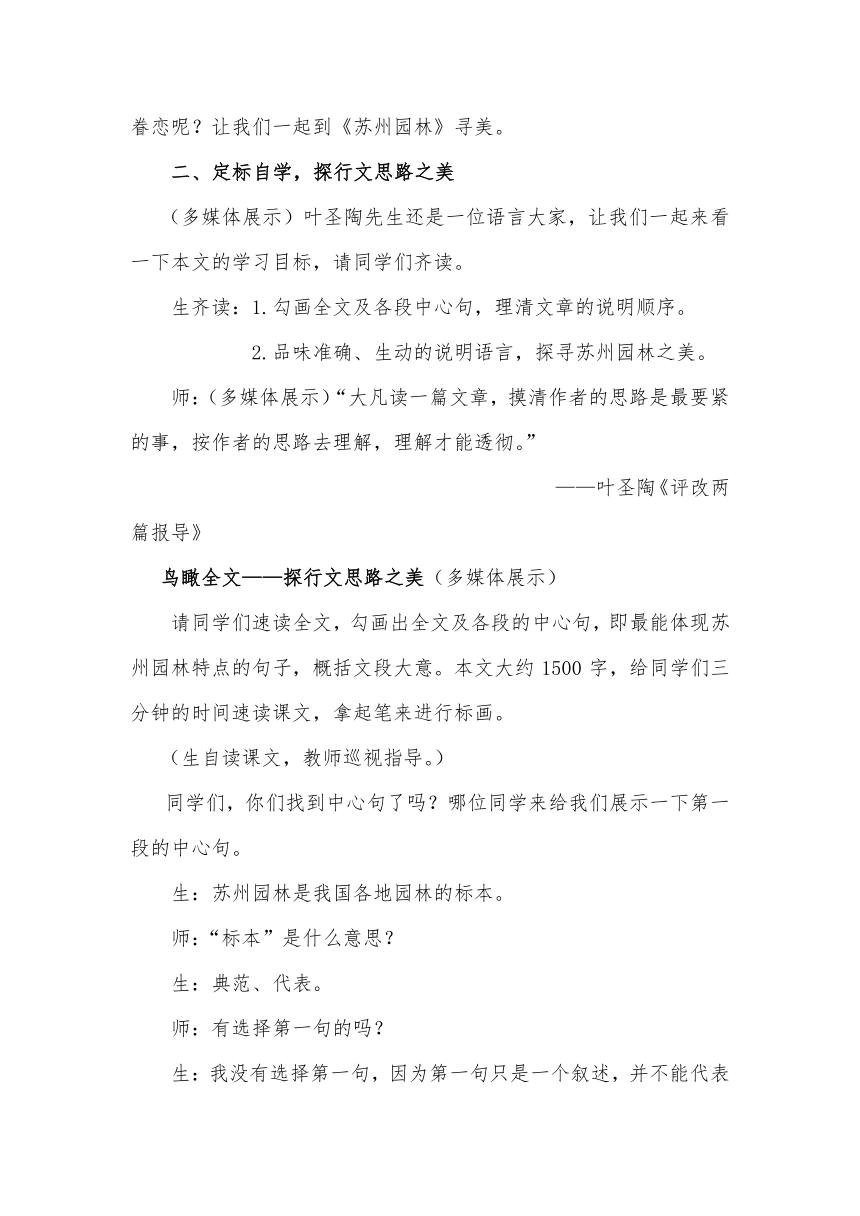 眷恋呢？让我们一起到《苏州园林》寻美。
二、定标自学，探行文思路之美
（多媒体展示）叶圣陶先生还是一位语言大家，让我们一起来看
一下本文的学习目标，请同学们齐读。
生齐读：1.勾画全文及各段中心句，理清文章的说明顺序。
2.品味准确、生动的说明语言，探寻苏州园林之美。
师：（多媒体展示）“大凡读一篇文章，摸清作者的思路是最要紧
的事，按作者的思路去理解，理解才能透彻。”
——叶圣陶《评改两
篇报导》
鸟瞰全文——探行文思路之美（多媒体展示）
请同学们速读全文，勾画出全文及各段的中心句，即最能体现苏
州园林特点的句子，概括文段大意。本文大约 1500 字，给同学们三
分钟的时间速读课文，拿起笔来进行标画。
（生自读课文，教师巡视指导。）
同学们，你们找到中心句了吗？哪位同学来给我们展示一下第一
段的中心句。
生：苏州园林是我国各地园林的标本。
师：“标本”是什么意思？
生：典范、代表。
师：有选择第一句的吗？
生：我没有选择第一句，因为第一句只是一个叙述，并不能代表